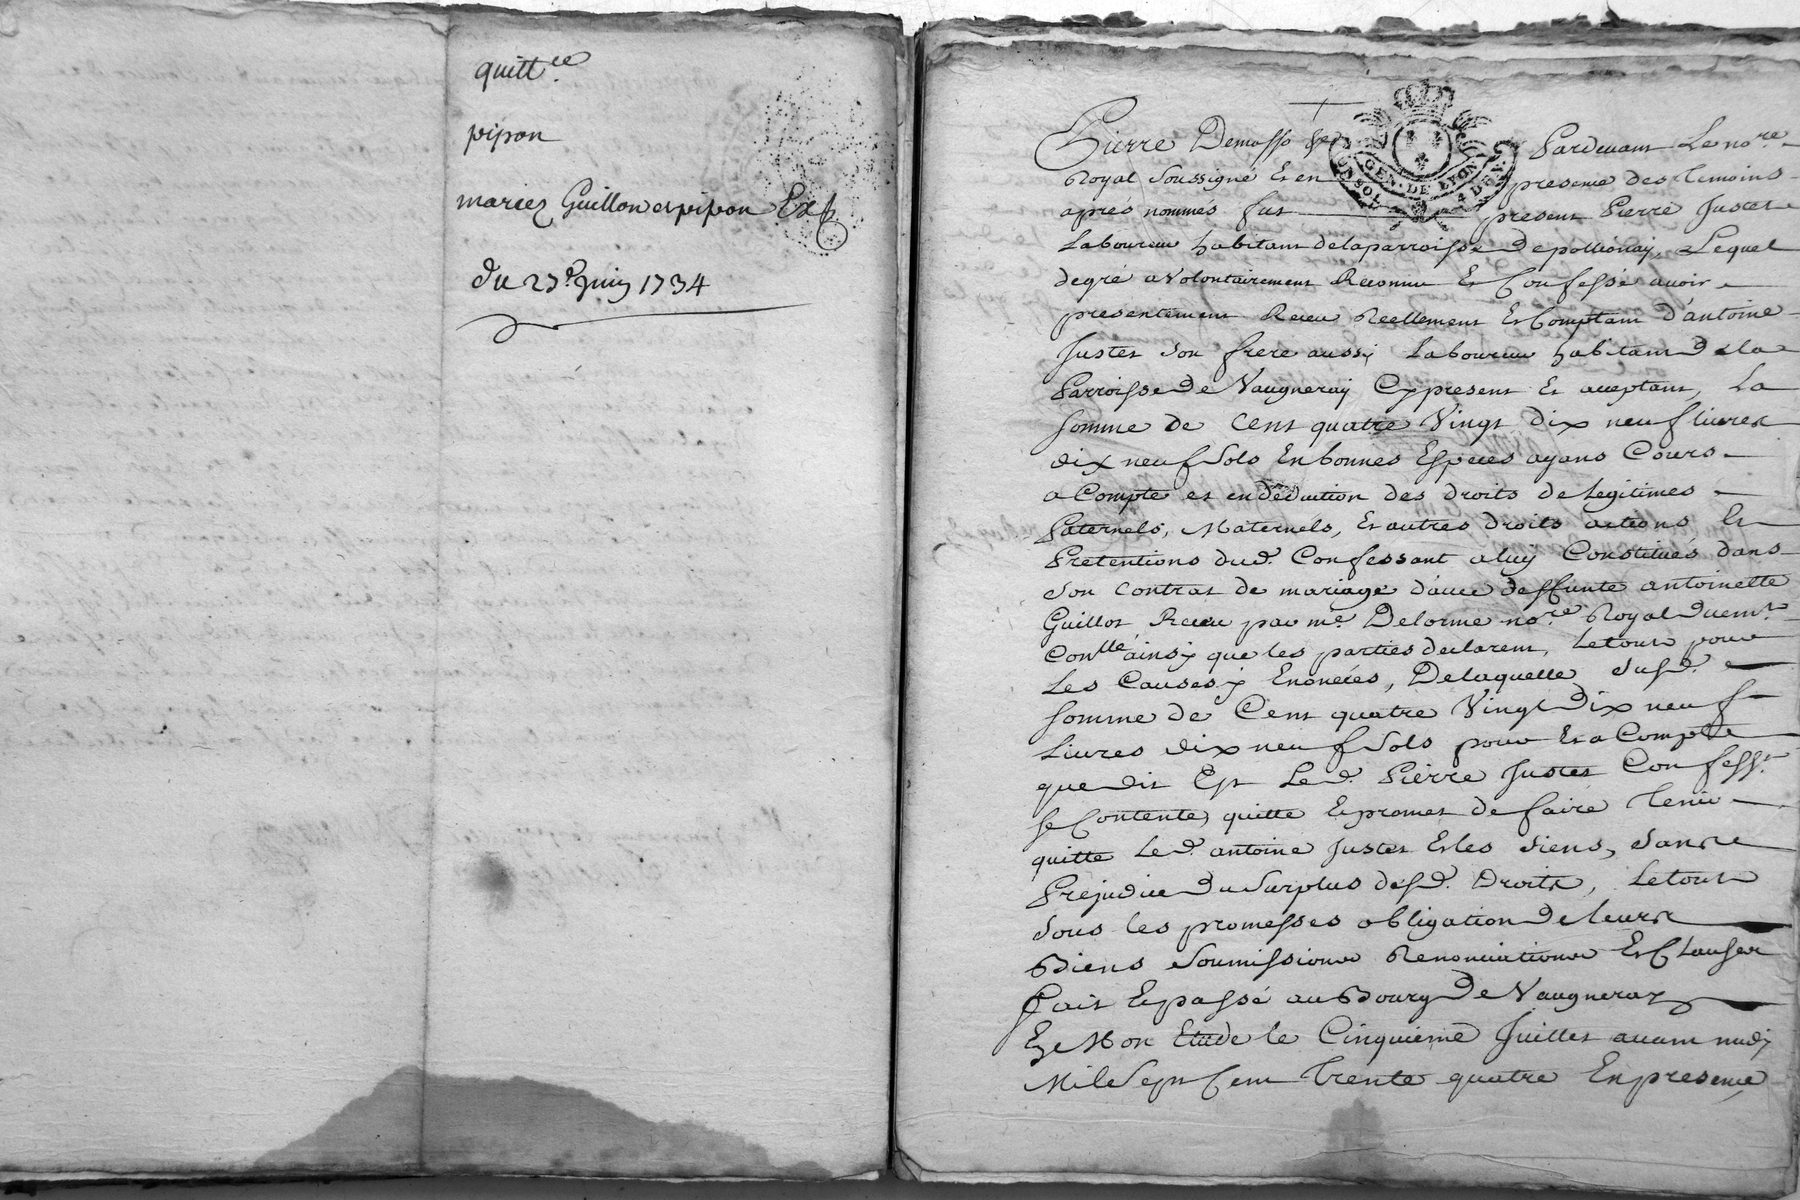 quitt.ce
pipon
mariez Guillon et pipon Exp
du 27e Juin 1734
GEN. DE LYON
Pardevant Le nore
Royal Soussigné Et en presence des Temoins
aprés nommés fut present Pierre Justet
Laboureur habitant de la parroisse de pollionay, Lequel
de gré a volontairement Reconnu Et Confessé avoir
presentement Receu Reellement Et Comptant d'antoine
Justet son frere aussy Laboureur habitant de la
Parroisse de Vaugneray Cy present Et acceptant, La
somme de Cent quatre Vingt dix neuf livres
dix neuf sols En bonnes Especes ayans Cours
a Compte et en deduction des droits de Legitimes
Paternels, Maternels, Et autres droits actions Et
Pretentions dud. Confessant a luy Constitués dans
son contrat de mariage d'avec deffunte antoinette
Guillot Receu par me. Delorme nore. Royal duemt.
Conllé ainsy que les parties declarent, Le tout pour
Les Causes y Enoncées, De laquelle susd.
somme de Cent quatre Vingt Dix neuf
Livres dix neuf sols pour Et a Compte
que dit Est Led. Pierre Justet Confesst.
se Contente, quitte Et promet de faire Tenir
quitte Led. antoine Justet Et les siens, sans
Prejudice du surplus desd. Droits, Le tout
sous les promesses obligation de leurs
Biens Soumissions Renonciations Et Clauses
Fait Et passé au Bourg de Vaugneray
En Mon Etude le Cinquieme Juillet avant midy
Mil Sept Cent Trente quatre En presence